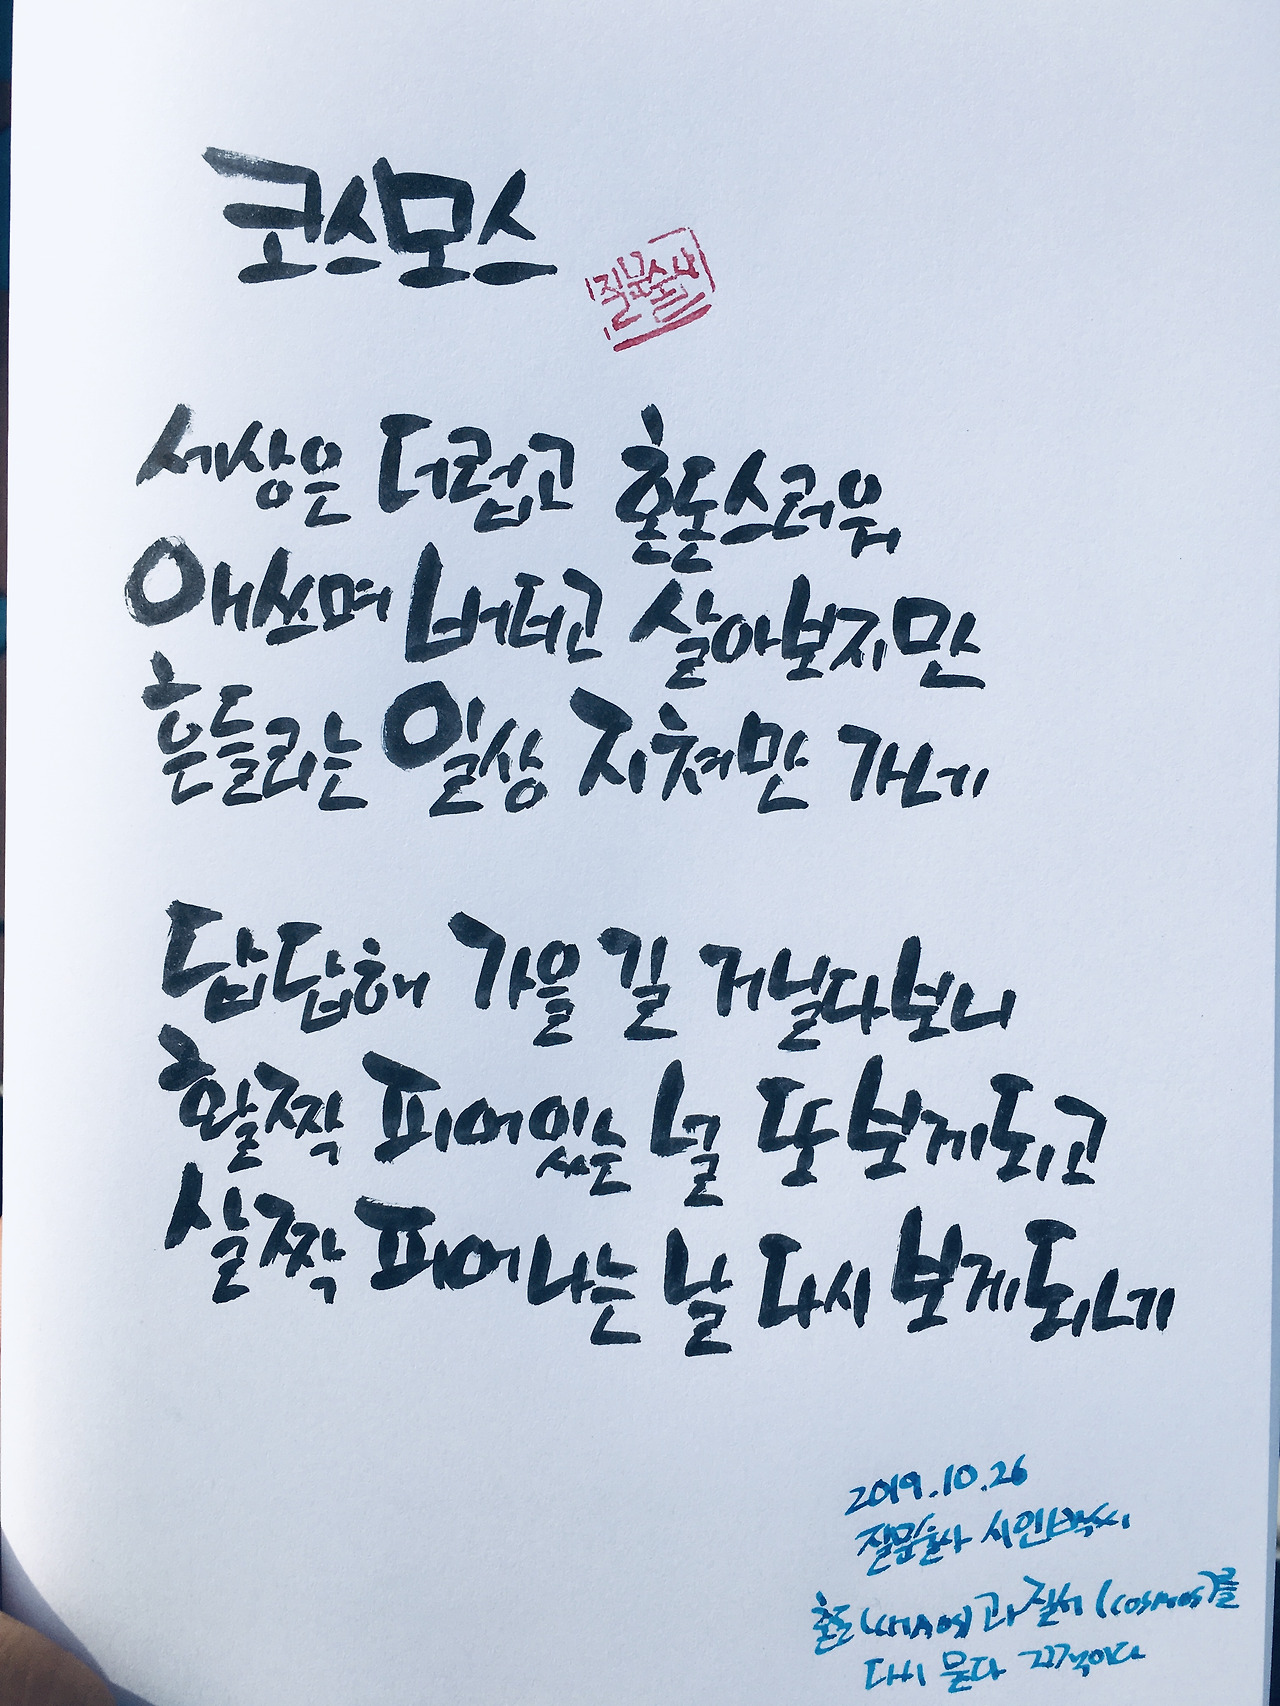 코스모스
질문술사
세상은 더럽고 혼돈스러워
애쓰며 버티고 살아보지만
흔들리는 일상 지쳐만 가네
답답해 가을 길 거닐다보니
활짝 피어있는 널 또 보게되고
살짝 피어나는 날 다시 보게되네
2019.10.26
질문술사 시인박씨
혼돈(CHAOS)과 질서(COSMOS)를
다시 묻다 끄적이다